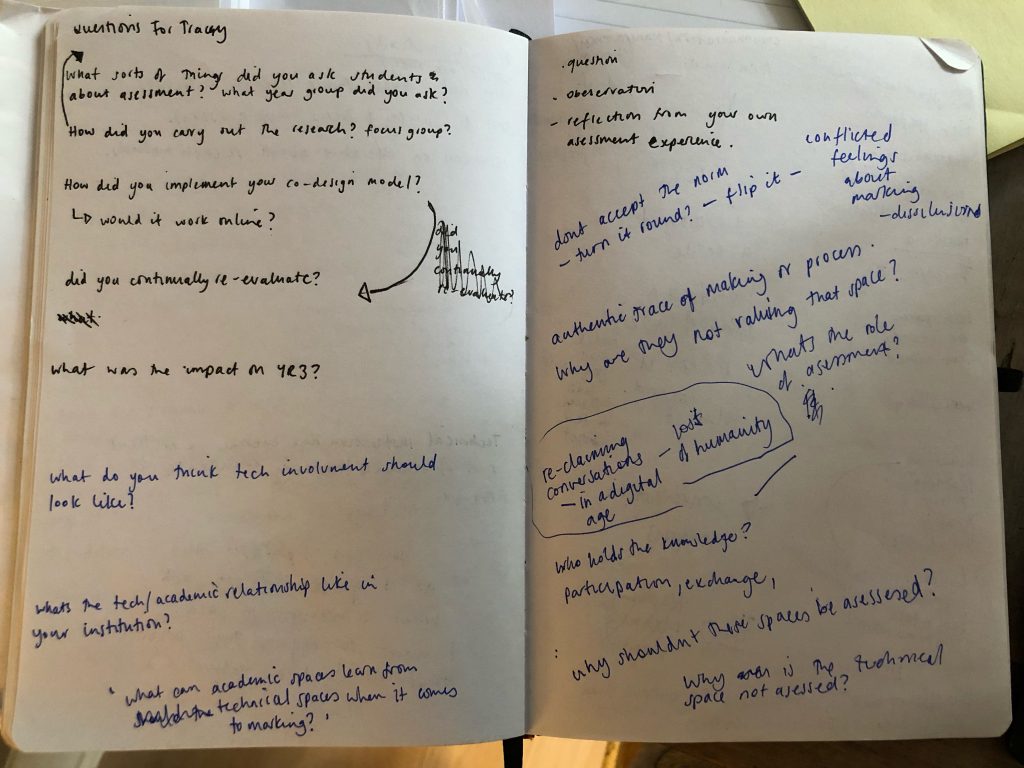 Questions For Tracey
What sorts of things did you ask students
about asessment? what year group did you ask?
How did you carry out the research? focus group?
How did you implement your co-design model?
↳ would it work online?
did
you
continually
re-evaluate?
did you continually re-evaluate?
what was the impact on YR3?
what do you think tech involvment should
look like?
whats the tech/academic relationship like in
your institution?
' what can academic spaces learn from
the technical spaces when it comes
to marking? '
. question
. observation
- reflection from your own
asessment experience.
dont accept the norm
- turn it round? - flip it -
conflicted
feelings
about
marking
authentic trace of making or process.
why are they not valuing that space?
whats the role
of asessment?
re-claiming
conversations
- in a digital
age
- loss
of humanity
who holds the knowledge?
participation, exchange,
: why shouldnt these spaces be asessed?
why is the technical
space not asessed?